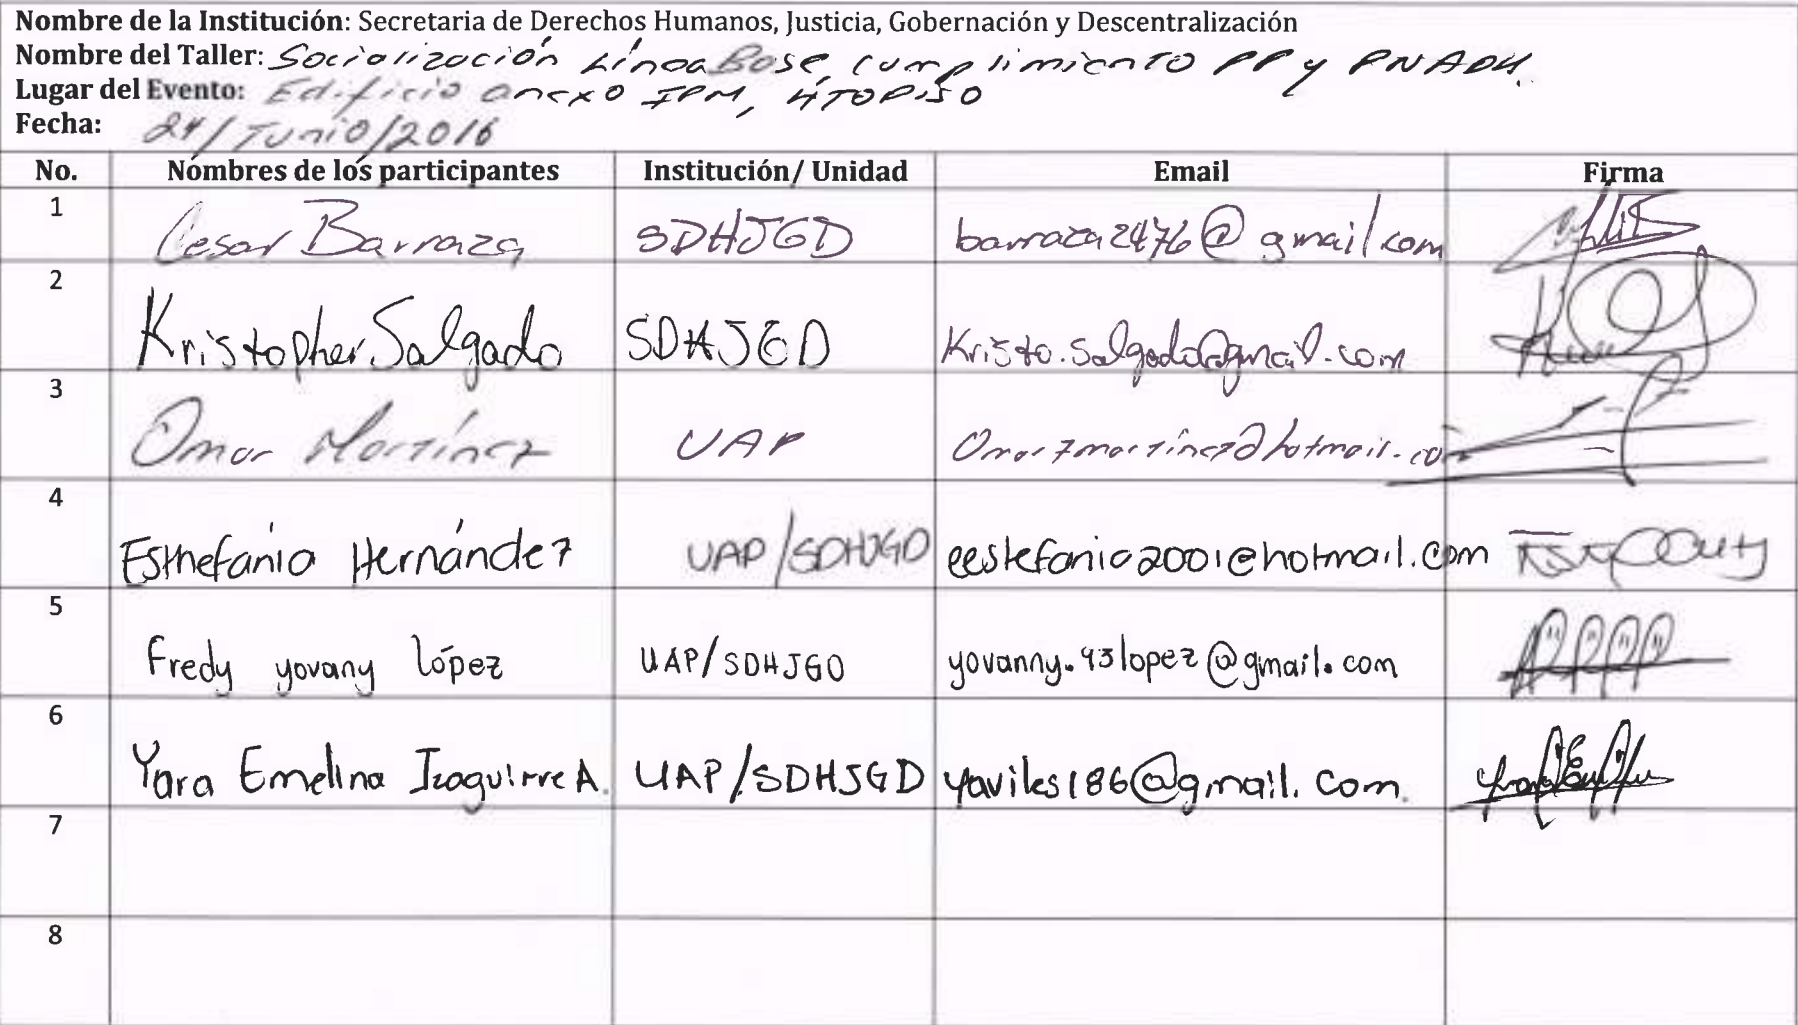 Nombre de la Institución: Secretaria de Derechos Humanos, Justicia, Gobernación y Descentralización
Nombre del Taller: Socialización Línea Base, cumplimiento PP y PNADH.
Lugar del Evento: Edificio anexo IPM, 4TO Piso
Fecha: 24/Junio/2016
No. Nombres de los participantes Institución/ Unidad Email Firma
1 Cesar Barraza SDHJGD barraza2476@gmail.com
2 Kristopher Salgado SDHJGD Kristo.Salgado@gmail.com
3 Omar Martínez UAP Omar7martinez@hotmail.com
4 Esthefania Hernández UAP/SDHJGD eestefania2001@hotmail.com
5 Fredy yovany lópez UAP/SDHJGD yovanny.93lopez@gmail.com
6 Yara Emelina Izaguirre A. UAP/SDHJGD yaviles186@gmail.com.
7
8